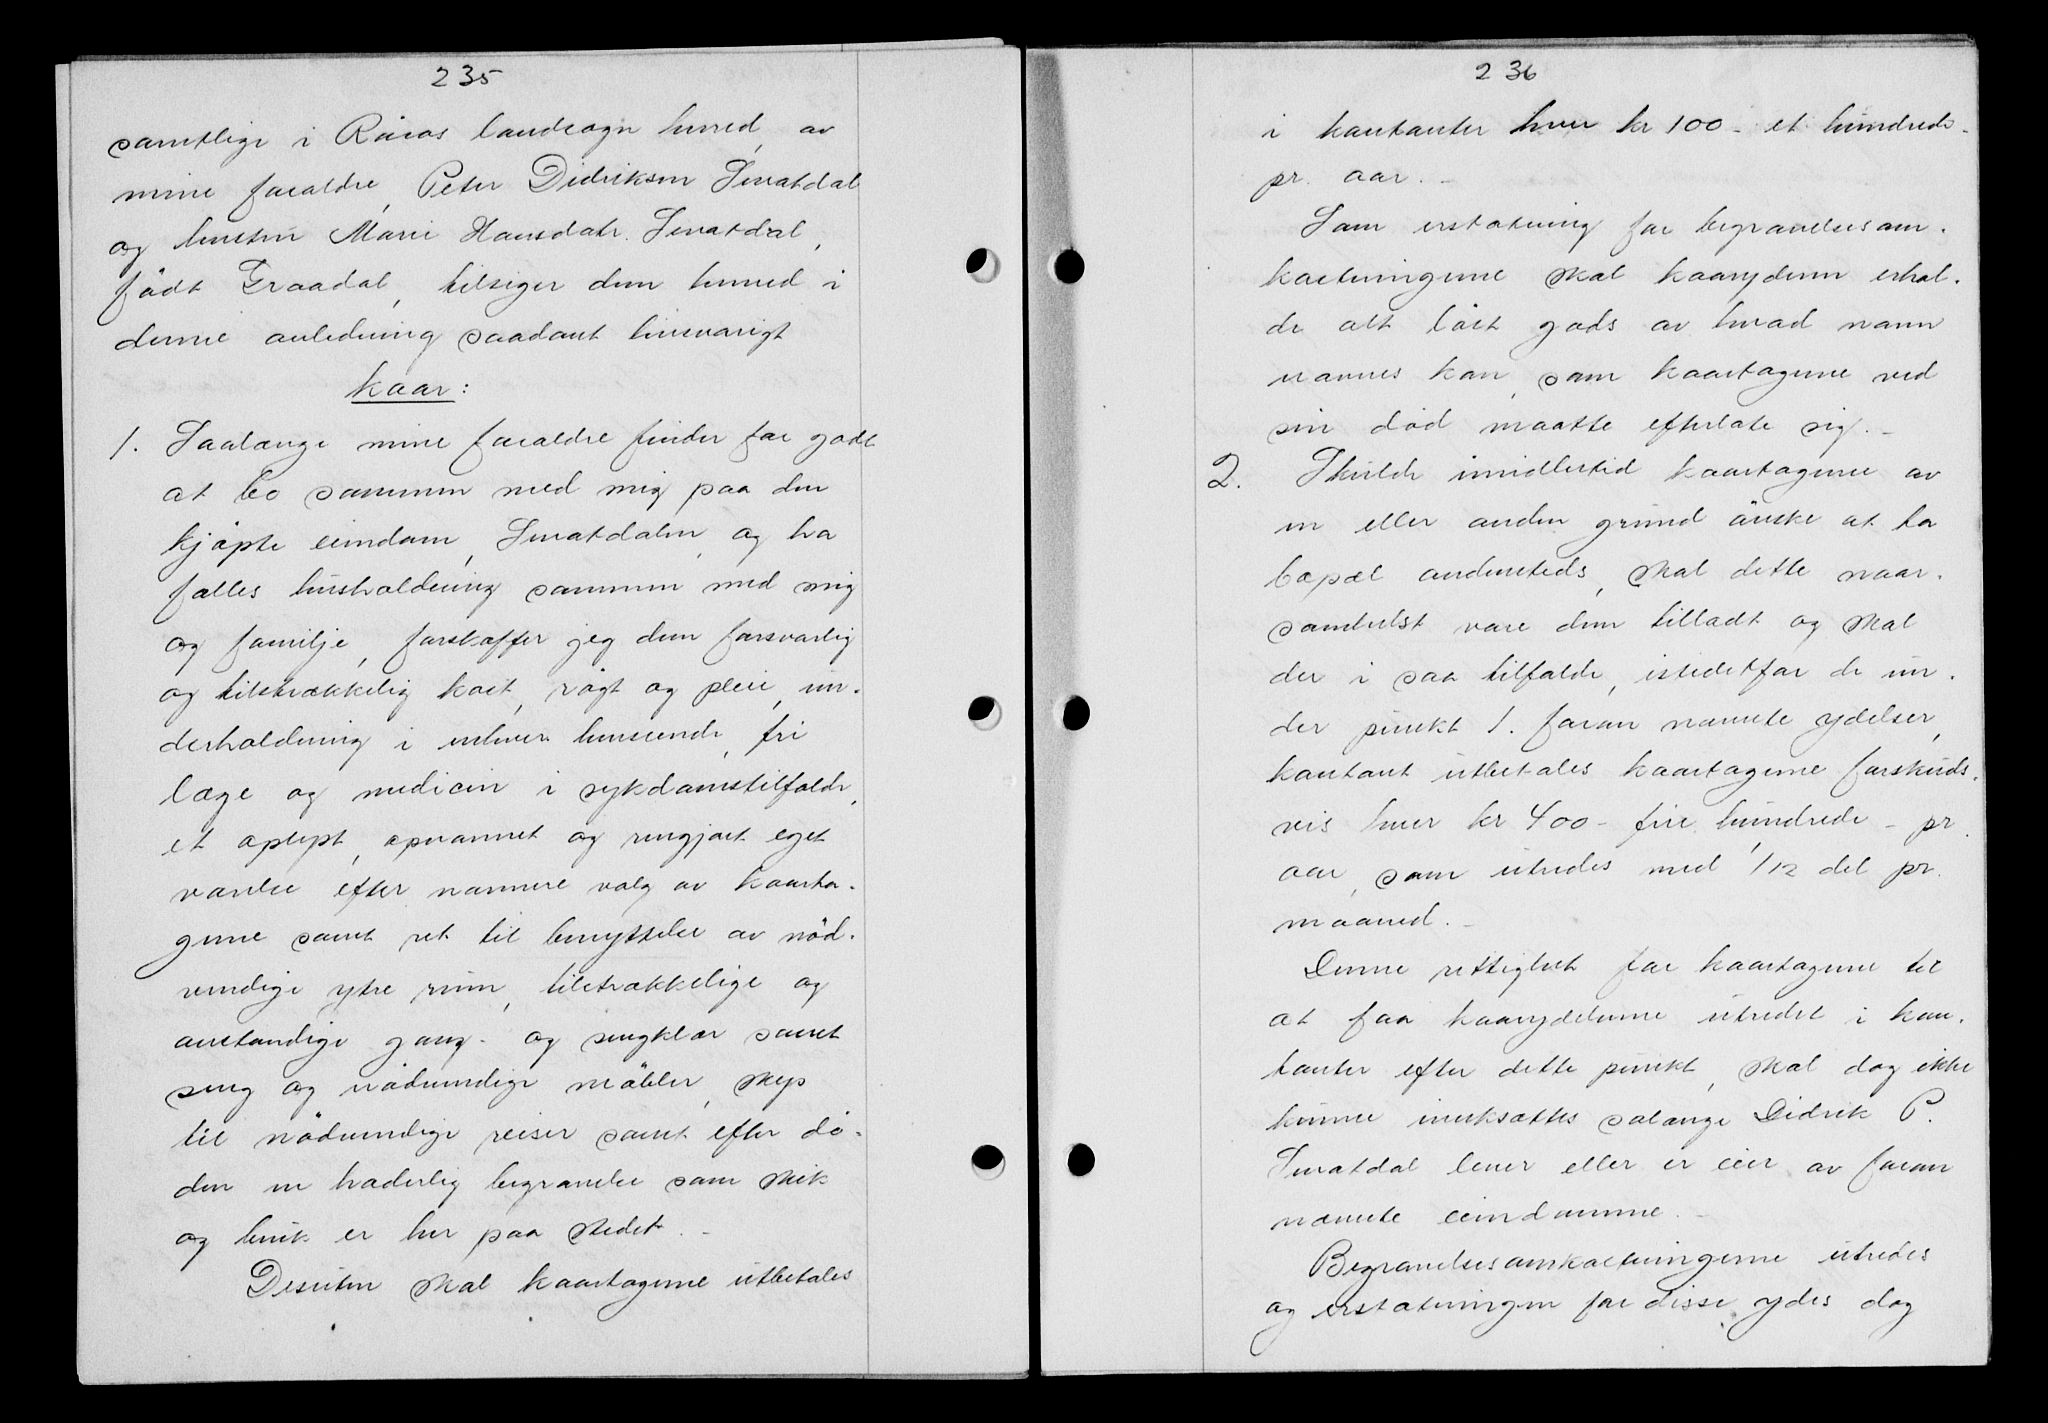 235
samtlige i Röros landsogn herred, av
mine forældre, Peter Didriksen Svratdal
og hustru Marie Hansdatr. Svratdal,
född Graadal, tilsiger dem herved i
denne anledning saadant livsvarigt
kaar:
1. Saalænge mine forældre finder for godt
at bo sammen med mig paa den
kjöpte eiendom, Svratdalen, og ha
fælles husholdning sammen med mig
og familje, forskaffer jeg dem forsvarlig
og tilstrækkelig kost, rögt og pleie, un-
derholdning i enhver henseende, fri
læge og medicin i sykdomstilfælde,
et oplyst, opvarmet og rengjort eget
værelse efter nærmere valg av kaarta-
gerne samt ret til benyttelse av nöd-
vendige ytre rum, tilstrækkelige og
anstændige gang- og sengklær samt
seng og nödvendige möbler, skys
til nödvendige reiser samt efter dö-
den en hæderlig begravelse som skik
og bruk er her paa stedet. -
Desuten skal kaartagerne utbetales
236
i kontanter hver kr 100 - et hundrede -
pr. aar. -
Som erstatning for begravelsesom-
kostningerne skal kaaryderen erhol-
de alt löst gods av hvad navn
nævnes kan, som kaartagerne ved
sin död maatte efterlate sig. -
2. Skulde imidlertid kaartagerne av
en eller anden grund önske at ta
bopæl andensteds, skal dette naar-
somhelst være dem tilladt og skal
der i saa tilfælde, istedetfor de un-
der punkt 1. foran nævnte ydelser,
kontant utbetales kaartagerne forskuds-
vis hver kr 400 - fire hundrede - pr.
aar, som utredes med 1/12 del pr.
maaned. -
Denne rettighet for kaartagerne til
at faa kaarydelserne utredet i kon-
tanter efter dette punkt, skal dog ikke
kunne iverksættes salænge Didrik P.
Svratdal lever eller er eier av foran
nævnte eiendomme. -
Begravelsesomkostningerne utredes
og erstatningen for disse ydes dog